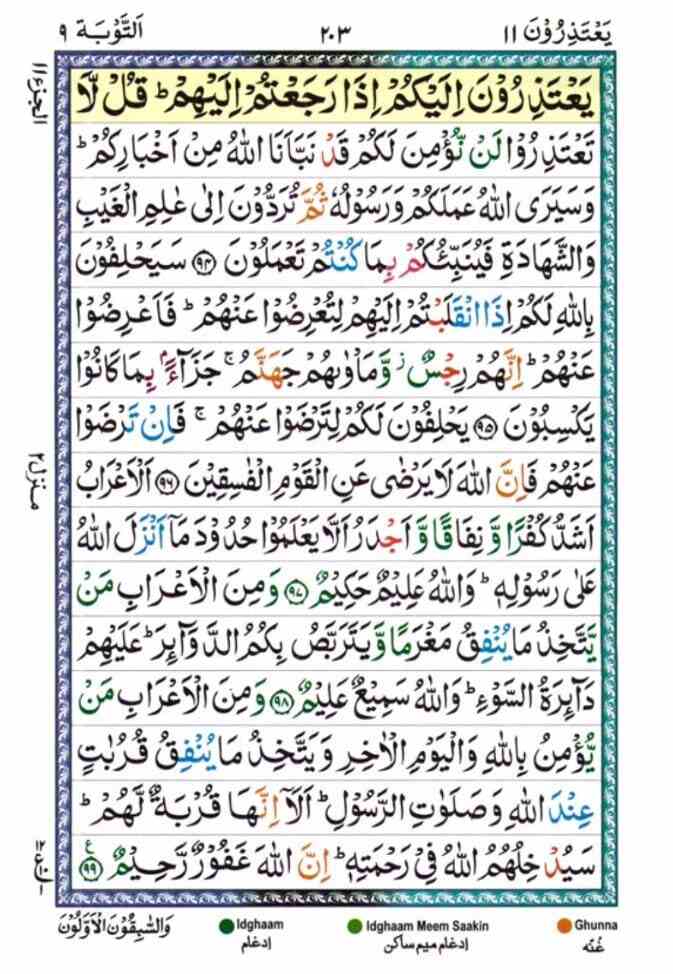 يَعْتَذِرُوْنَ ١١ ٢٠٣ اَلتَّوْبَة ٩
الجزء ١١
يَعْتَذِرُوْنَ اِلَيْكُمْ اِذَا رَجَعْتُمْ اِلَيْهِمْ ؕ قُلْ لَّا
تَعْتَذِرُوْا لَنْ نُّؤْمِنَ لَكُمْ قَدْ نَبَّاَنَا اللّٰهُ مِنْ اَخْبَارِكُمْ ؕ
وَسَيَرَى اللّٰهُ عَمَلَكُمْ وَرَسُوْلُهٗ ثُمَّ تُرَدُّوْنَ اِلٰى عٰلِمِ الْغَيْبِ
وَالشَّهَادَةِ فَيُنَبِّئُكُمْ بِمَا كُنْتُمْ تَعْمَلُوْنَ ۝٩٤ سَيَحْلِفُوْنَ
بِاللّٰهِ لَكُمْ اِذَا انْقَلَبْتُمْ اِلَيْهِمْ لِتُعْرِضُوْا عَنْهُمْ ؕ فَاَعْرِضُوْا
عَنْهُمْ ؕ اِنَّهُمْ رِجْسٌ ؗ وَّمَاْوٰىهُمْ جَهَنَّمُ ۚ جَزَآءًۢ بِمَا كَانُوْا
يَكْسِبُوْنَ ۝٩٥ يَحْلِفُوْنَ لَكُمْ لِتَرْضَوْا عَنْهُمْ ۚ فَاِنْ تَرْضَوْا
عَنْهُمْ فَاِنَّ اللّٰهَ لَا يَرْضٰى عَنِ الْقَوْمِ الْفٰسِقِيْنَ ۝٩٦ اَلْاَعْرَابُ
منزل ٢
اَشَدُّ كُفْرًا وَّنِفَاقًا وَّاَجْدَرُ اَلَّا يَعْلَمُوْا حُدُوْدَ مَاۤ اَنْزَلَ اللّٰهُ
عَلٰى رَسُوْلِهٖ ؕ وَاللّٰهُ عَلِيْمٌ حَكِيْمٌ ۝٩٧ وَمِنَ الْاَعْرَابِ مَنْ
يَّتَّخِذُ مَا يُنْفِقُ مَغْرَمًا وَّيَتَرَبَّصُ بِكُمُ الدَّوَآئِرَ ؕ عَلَيْهِمْ
دَآئِرَةُ السَّوْءِ ؕ وَاللّٰهُ سَمِيْعٌ عَلِيْمٌ ۝٩٨ وَمِنَ الْاَعْرَابِ مَنْ
يُّؤْمِنُ بِاللّٰهِ وَالْيَوْمِ الْاٰخِرِ وَيَتَّخِذُ مَا يُنْفِقُ قُرُبٰتٍ
عِنْدَ اللّٰهِ وَصَلَوٰتِ الرَّسُوْلِ ؕ اَلَاۤ اِنَّهَا قُرْبَةٌ لَّهُمْ ؕ
سَيُدْخِلُهُمُ اللّٰهُ فِيْ رَحْمَتِهٖ ؕ اِنَّ اللّٰهَ غَفُوْرٌ رَّحِيْمٌ ۝٩٩ ع
وَالسّٰبِقُوْنَ الْاَوَّلُوْنَ
Idghaam
ادغام
Idghaam Meem Saakin
ادغام میم ساکن
Ghunna
غُنّه